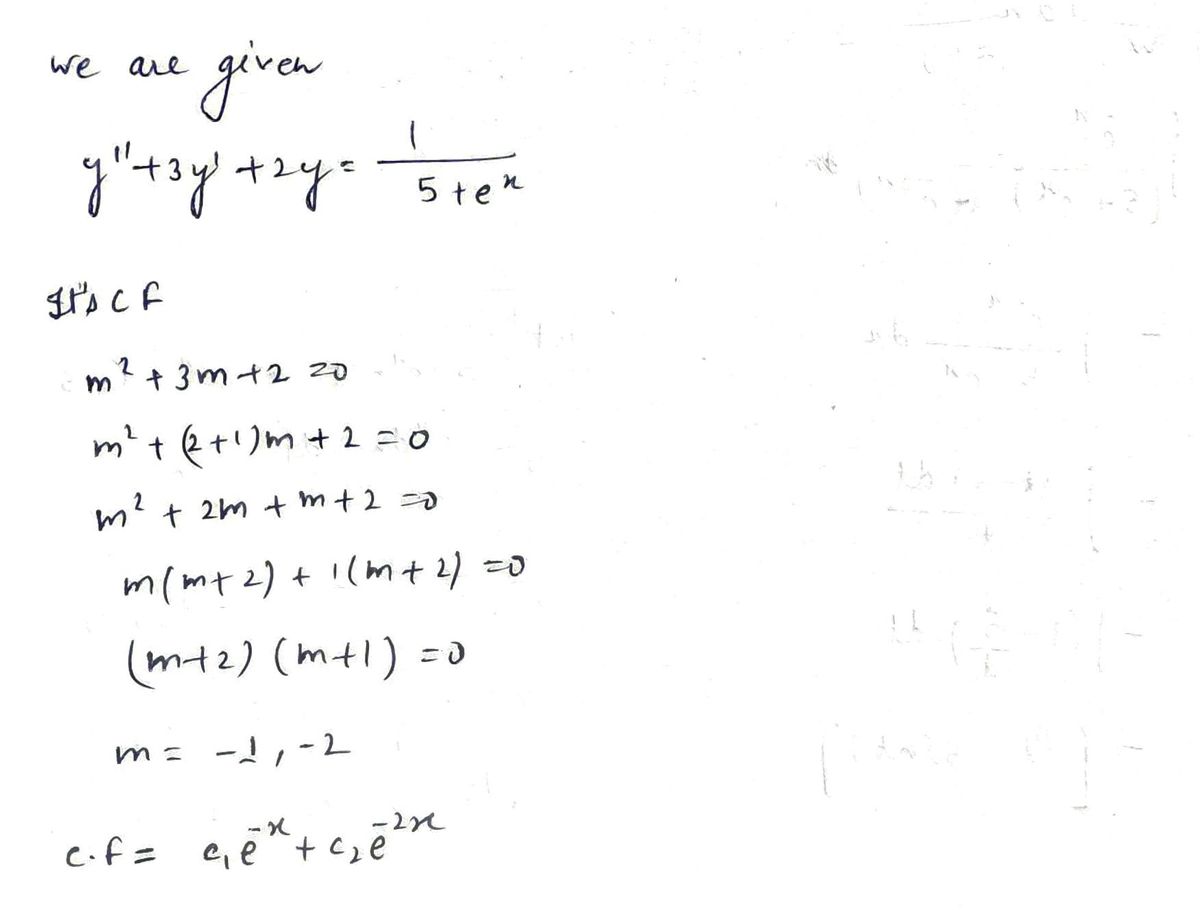 we are given
y"+3y'+2y= 1/(5+e^x)
It's C F
m²+3m+2=0
m²+(2+1)m+2=0
m²+2m+m+2=0
m(m+2)+1(m+2)=0
(m+2)(m+1)=0
m= -1,-2
C.f= c₁e^-x+c₂e^-2x